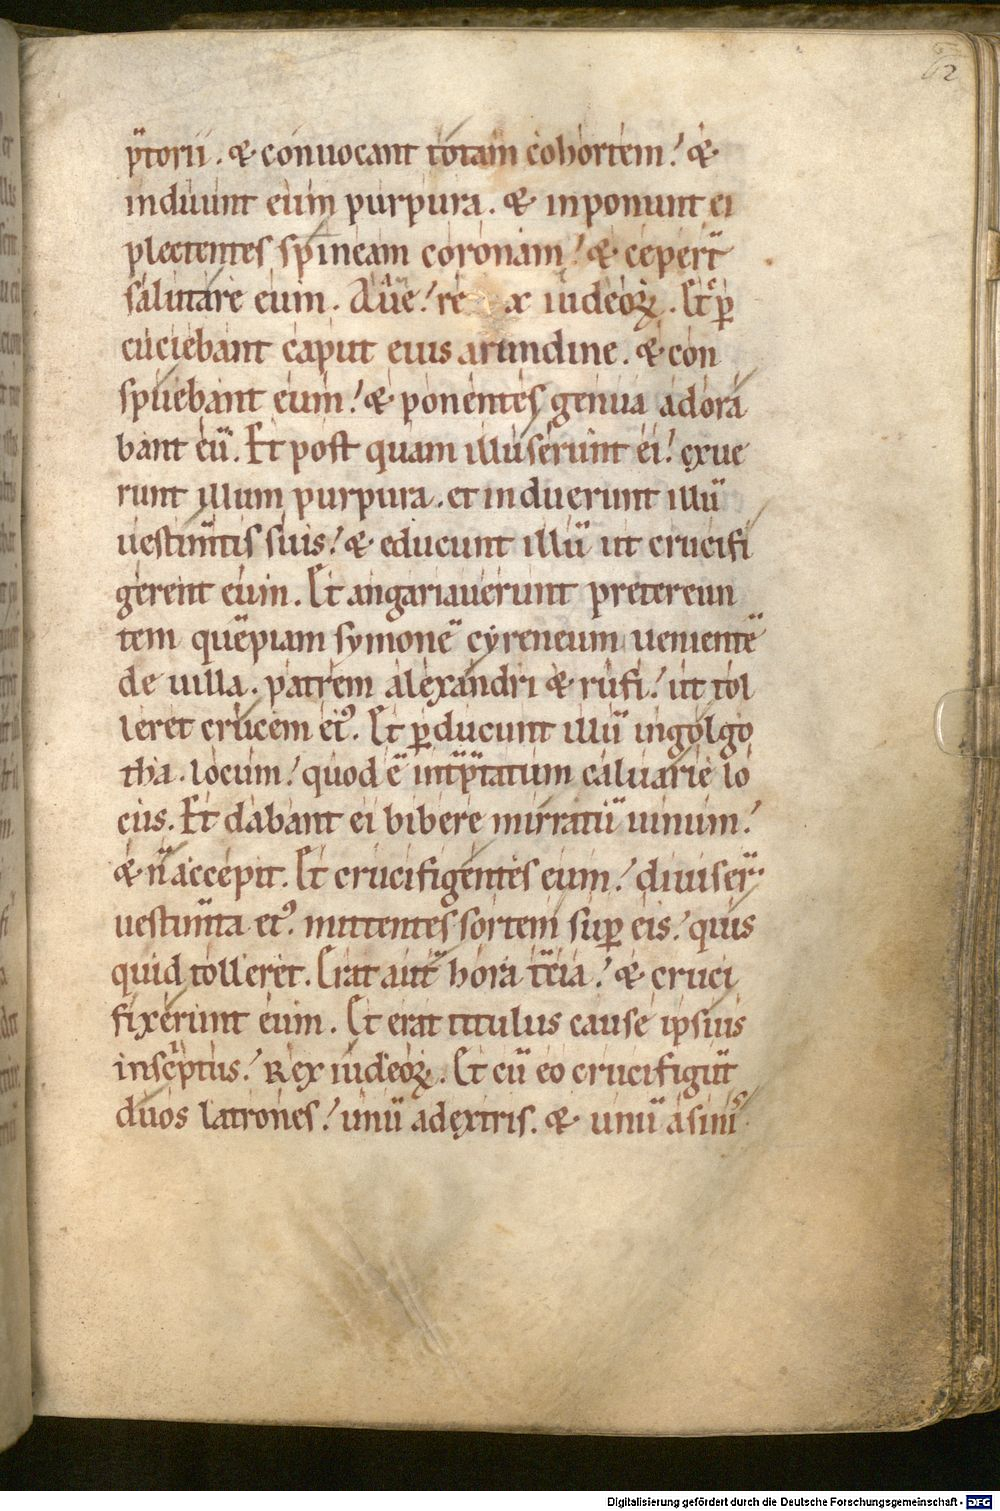 62
p̄torii . & conuocant totam cohortem ! &
induunt eum purpura . & inponunt ei
plectentes spineam coronam ! & ceper̄t
salutare eum . Aue ! re x iudeoꝝ . Et ꝑ
cuciebant caput eius arundine . & con
spuebant eum ! & ponentes genua adora
bant eū . Et post quam illuserunt ei ! exue
runt illum purpura . et induerunt illū
uestim̄tis suis ! & educunt illū ut crucifi
gerent eum . Et angariauerunt pretereun
tem quēpiam symonē cyreneum uenientē
de uilla . patrem alexandri & rufi ! ut tol
leret crucem eiꝰ . Et ꝑducunt illū ingolgo
tha . locum ! quod ē int̄p̄tatum caluarie lo
cus . Et dabant ei bibere mirratū uinum !
& n̄ accepit . Et crucifigentes eum ! diuiser̄
uestim̄ta eiꝰ . mittentes sortem suꝑ eis ! quis
quid tolleret . Erat aut̄ hora t̄cia ! & cruci
fixerunt eum . Et erat titulus cause ipsius
insc̄ptus ! Rex iudeoꝝ . Et cū eo crucifigūt
duos latrones ! unū adextris . & unū asinis̄
Digitalisierung gefördert durch die Deutsche Forschungsgemeinschaft - DFG